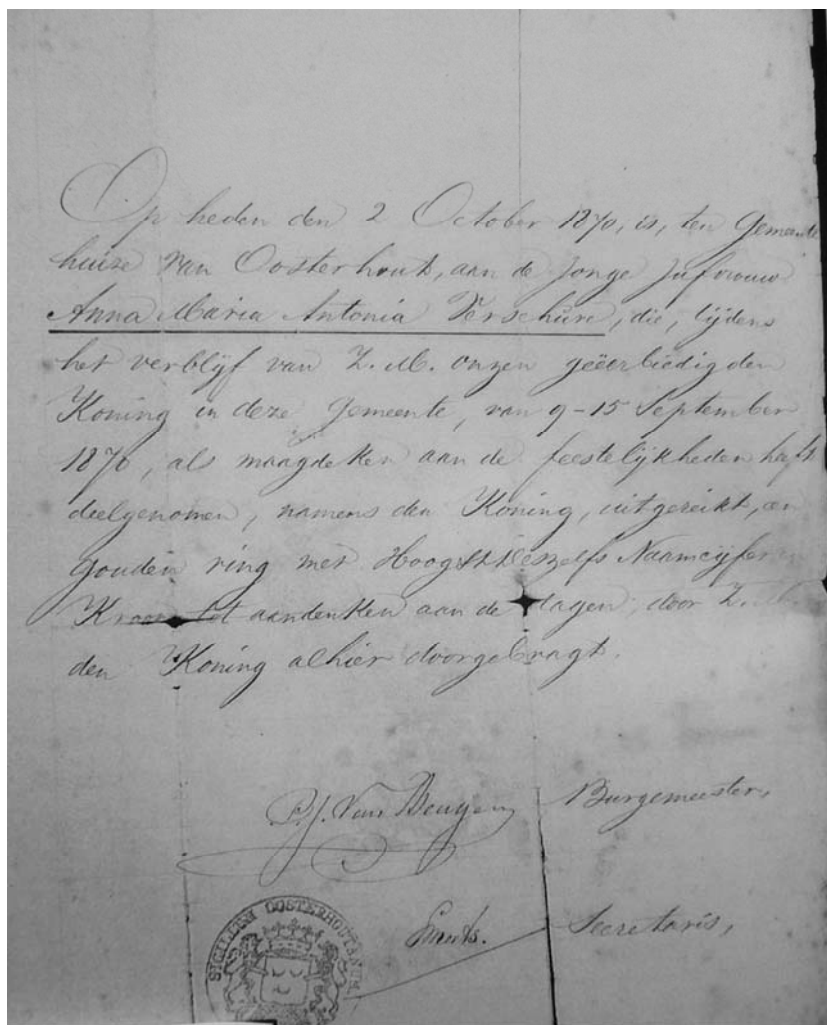 Op heden den 2 October 1870, is, ten Gemeente
huize van Oosterhout, aan de Jonge Jufvrouw
Anna Maria Antonia Verschure, die, tijdens
het verblijf van Z. M. onzen geëerbiedigden
Koning in deze Gemeente, van 9-15 September
1870, als maagdeken aan de feestelijkheden heeft
deelgenomen, namens den Koning, uitgereikt, een
gouden ring met Hoogstdeszelfs Naamcijfer en
Kroon tot aandenken aan de dagen, door Z.
den Koning alhier doorgebragt.
P.J. Van Beugen Burgemeester,
Smits. Secretaris,
SIGILLUM OOSTERHOUTANUM